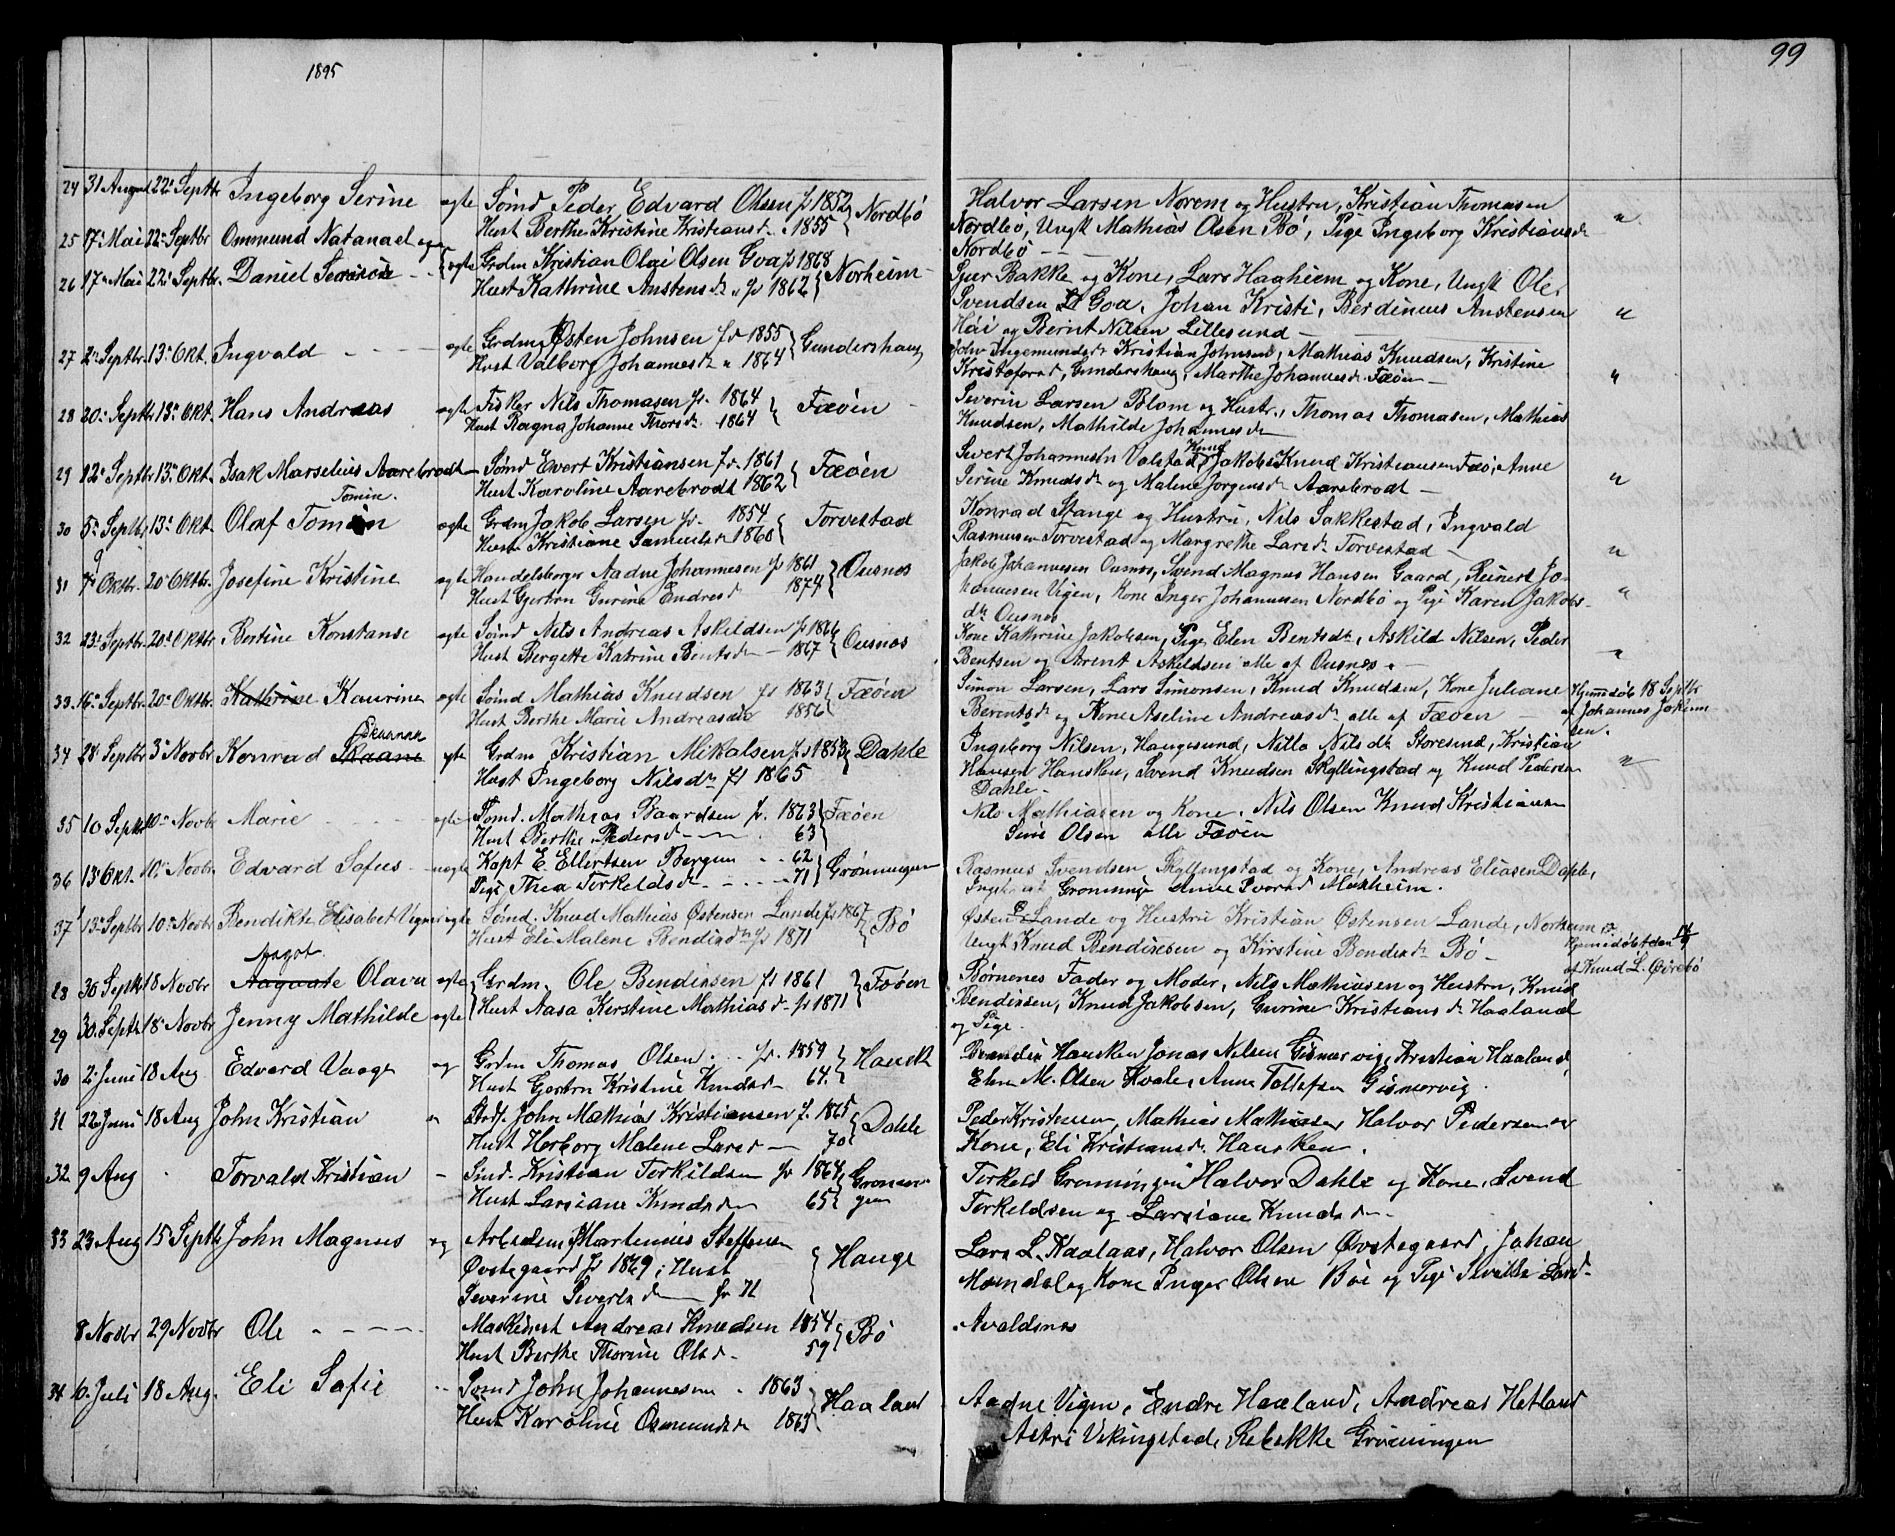 1895
99
24 31 August 22 Septbr Ingeborg Serine ægte Sømd Peder Edvard Olsen f 1852 Nordbö
Hust Berthe Kristine Kristiansd. 1855
Halvor Larsen Norem og Hustru, Kristian Thomasen
Nordbö, Ungk Mathias Olsen Bö, Pige Ingeborg Kristiansd
Nordbö
25 17 Mai 22 Septbr Ommund Natanael og
26 17 Mai 22 Septbr. Daniel ægte Grdm Kristian Olai Olsen Goa f 1868 Norheim
Hust Kathrine Anstensd. f 1862
Bakke og Kone, Lars Haaheim og Kone, Ungk Ole
Svendsen Goa, Johan Kristi, Berdinus Anstensen
og Bernt Nilsen Lillesund
27 2 Septbr 13 Okt. Ingvald ægte Grdm Østen Johnsen f 1855 Gundershaug
Hust Valborg Johannesd 1864
Ingemundsd Kristian Johnsen, Mathias Knudsen, Kristine
Kristofersd, Gundershaug, Marthe Johannesd. Fæöen
28 20 Septbr 13 Okt. Hans Andreas ægte Fisker Nils Thomasen f. 1864 Fæöen
Hust Ragna Johanne Thorsd. 1864
Severin Larsen Blom og Hustr., Thomas Thomasen, Mathias
Knudsen, Mathilde Johannesd
29 12 Septbr 13 Okt. Isak Marselius Aarebrodt Sømd Evert Kristiansen f. 1861 Fæöen
Hust Karoline Aarebrodt 1862
Sivert Johannesen Valstad, Jakobs Knud Kristiansen Fæö, Anne
Serine Knudsd og Malene Jorgensd Aarebrodt
Tomin.
30 5 Septbr 13 Okt. Olaf Tomin ægte Grdm Jakob Larsen f. 1854 Torvestad
Hust Kristiane Samuelsd 1860
Konrad Stange og Hustru, Nils Sakkestad, Ingvald
Rasmussen Torvestad og Margrethe Larsd Torvestad
31 Oktbr. 20 Oktbr. Josefine Kristine ægte Handelsborger Aadne Johannesen f 1861 Ousnes
Hust Gjertru Gurine Endresd 1874
Jakob Johannesen Ousnes, Svend Magnus Hansen Gaard, Reinert Jo-
hannesen Vigen, Kone Inger Johannesen Nordbö og Pige Karen Jakobs-
dt Ousnes
32 23 Septbr. 20 Oktbr Bertine Konstanse ægte Sømd Nils Andreas Askildsen f 1866 Ousnes
Hust Bergette Katrine Bentsd 1867
Kone Kathrine Jakobsen, Pige Elen Bentsdt, Askild Nilsen, Peder
Bentsen og Arent Askildsen alle af Ousnes.
33 16 Septbr. 20 Oktbr Kathrine Kaurine ægte Sømd Mathias Knudsen f 1863 Fæöen
Hust Berthe Marie Andreasd 1856
Simon Larsen, Lars Simonsen, Knud Knudsen, Kone Juliane
Berentsd og Kone Aseline Andreasd alle af Fæöen
Hjemdöb 18 Septbr
af Johannes Jokim
sen.
34 28 Septbr 3 Novbr Konrad Skaane ægte Grdm Kristian Mikalsen f 1853 Dahle
Hust Ingeborg Nilsd f 1865
Ingeborg Nilsen, Haugesund, Nilla Nilsdt Storesund, Kristian
Hansen Hansken, Svend Knudsen Skyllingstad og Knud Pedersen
Dahle.
35 10 Septbr 10 Novbr Marie ægte Sömd. Mathias Baardsen f. 1863 Fæöen
Hust Berthe Pedersd 63
Nils Mathiasen og Kone, Nils Olsen Knud Kristiansen
Sine Olsen alle Fæöen
36 13 Okt. 10 Novbr Edvard Sofus uægte Kapt E Ellertsen Bergen 62 Grönningen
Pige Thea Torkeldsd 71
Rasmus Svendsen, Skyllingstad og Kone, Andreas Eliasen Dahle,
37 13 Septbr 10 Novbr Bendikte Elisabet Vigner ægte Sömd. Knud Mathias Østensen Lande f 1867 Bö
Hust Eli Malene Bendixd f 1871
Østen Lande og Hustru Kristian Østensen Lande, Norheim
Ungk Knud Bendixen og Kirstine Bendixd Bö
Hjemdöbt den
af Knud L. Örebö
Aagot.
28 30 Septbr 18 Novbr Olava ægte Grdm. Ole Bendixen f 1861 Fæöen
29 30 Septbr 18 Novbr Jenny Mathilde ægte Hust Aasa Kerstine Mathiasd f 1871
Børnenes Fader og Moder, Nils Mathiasen og Hustru, Knud
Bendixen, Knud Jakobsen, Gurine Kristiansd Haaland
og Pige.
30 2 Juni 18 Aug Edvard Vaage Grdm Thomas Olsen f. 1859 Hansk
Hust Gjertru Kristine Knudsd 64.
Hansken Jonas Nilsen Gismervig, Kristian Haaland,
Elen M. Olsen Kvale, Anna Tollefsen Gismervig.
31 22 Juni 18 Aug John Kristian Strdt. John Mathias Kristiansen f. 1865 Dahle
Hust Herborg Malene Larsd 70
Peder Kristensen, Mathias Mathiasen Halvor Pedersen og
Kone, Eli Kristiansd. Hansken.
32 9 Aug Torvald Kristian Sind. Kristian Torkildsen f 1864 Gronnin
gen
Hust Larsiane Knudsd 65
Torkeld Gronningen Halvor Dahle og Kone, Svend
Torkeldsen og Larsiane Knudsd
33 23 Aug 15 Septbr John Magnus Arbeidsm Martinius Steffensen Hauge
Øvstegaard f 1869, Hust
Severine Sivertsd f 71
Lars L. Kaalaas, Halvor Olsen Øvstegaard, Johan
Mændal og Kone Inger Olsen Böe og Pige
8 Novbr 29 Novbr Ole Maskinist Andreas Knudsen 1854 Bö
Hust Berthe Thorine Olsd 59
Avaldsnes
34 6. Juli 18 Aug. Eli Sofie Sømd John Johannesen 1863 Haaland
Hust Karoline Osmundsd 1863
Aadne Vigen, Endre Haaland, Andreas Hetland
Astri Vikingstad, Rebekke Grönningen